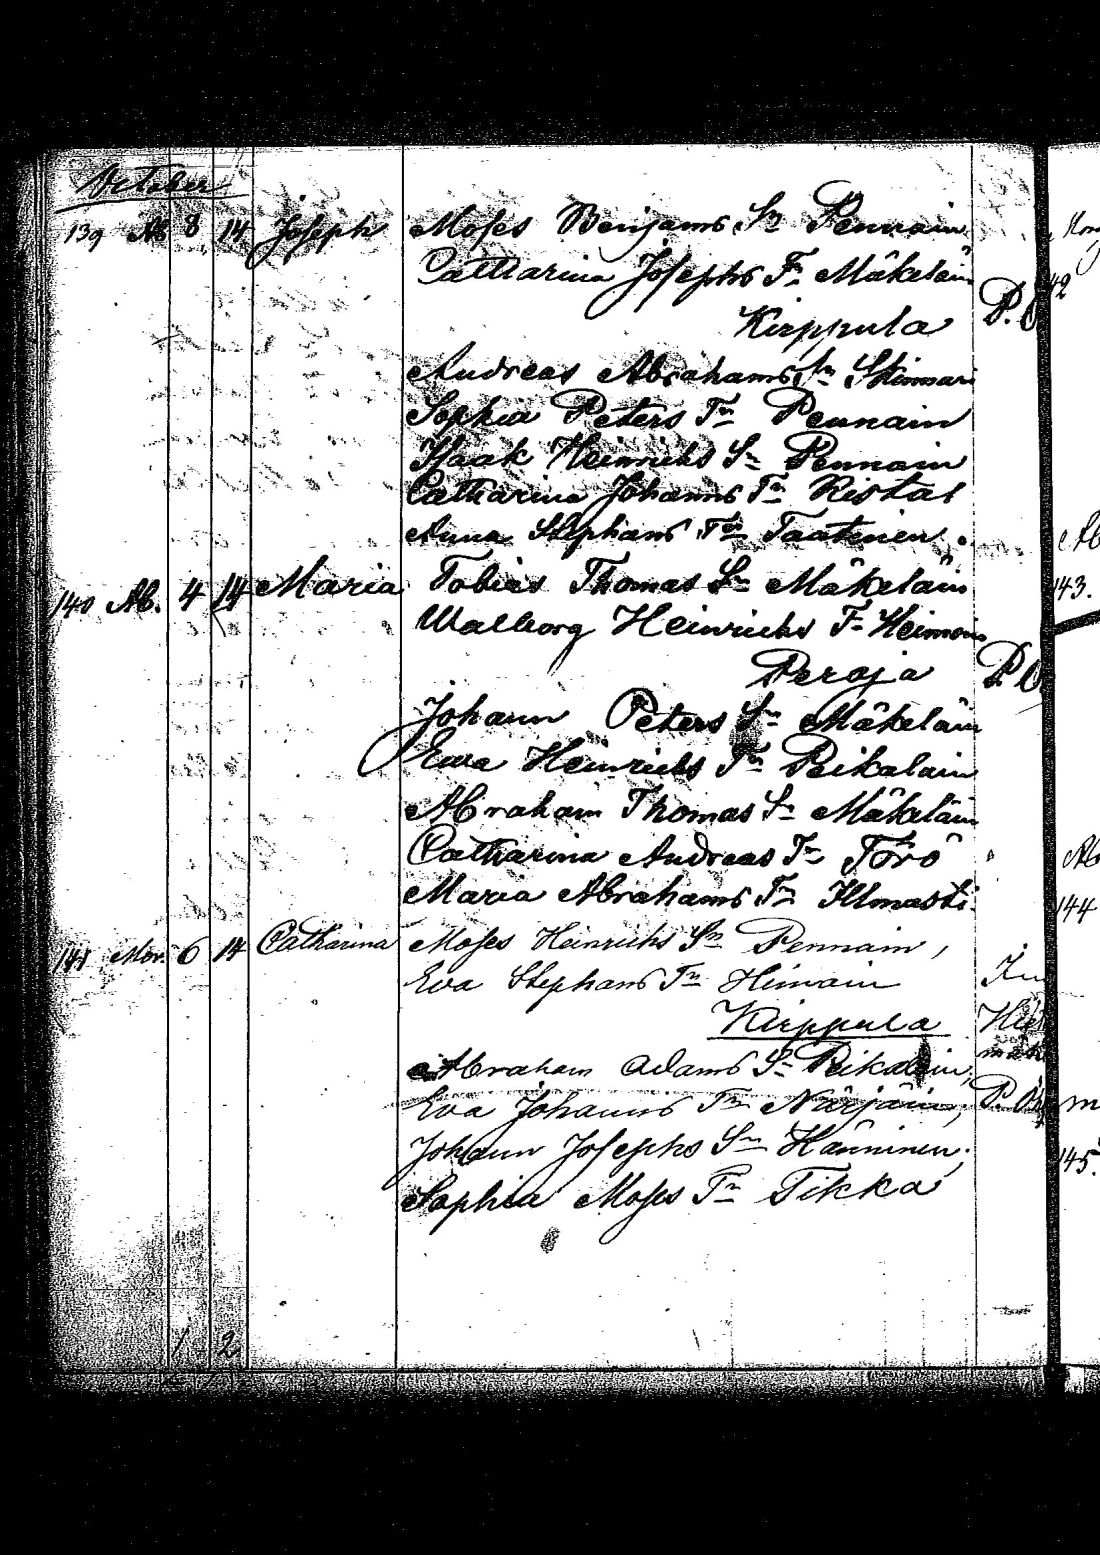 October
139 Ab. 8 14 Joseph Moses Benjams Sn Pennain
Catharina Josephs Tn Mäkeläin
Kirppula P.
Andreas Abrahams Sn Skinnari
Sophia Peters Tn Pennain
Isaak Heinrichs Sn Pennain
Catharina Johanns Tn Ristal
Anna Stephans Tn Taatinen.
140 Ab. 4 14 Maria Tobias Thomas Sn Mäkeläin
Walborg Heinrichs Tn Heimoin
Peraja P
Johann Peters Sn Mäkeläin
Ewa Heinrichs Tn Peikalain
Abraham Thomas Sn Mäkeläin
Catharina Andreas Tn Törö
Maria Abrahams Tn Ilmasti
141 Mor. 6 14 Catharina Moses Heinrichs Sn Pennain,
Eva Stephans Tn Himain
Kirppula
Abraham Adams Sn Peikalain,
Eva Johanns Tn Närjäin, P.
Johann Josephs Sn Hänninen,
Sophia Moses Tn Tikka
1 2
42
43.
144
145.